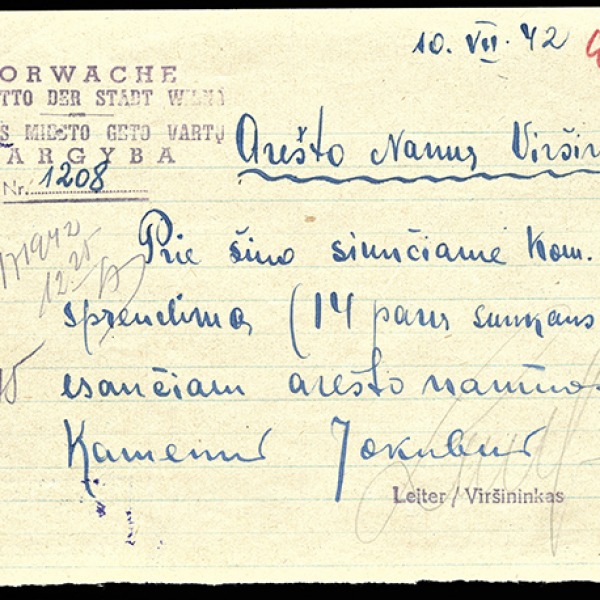 10. VII. 42
ORWACHE
TTO DER STADT WILNA
S MIESTO GETO VARTŲ
ARGYBA
Nr. 1208
Arešto Namus Virši
1942
12.25
Prie šino siunčiame Kom.
sprendimą (14 parus sunkaus
esančiam arešto namuos
Kamenui Jokubui
Leiter / Viršininkas